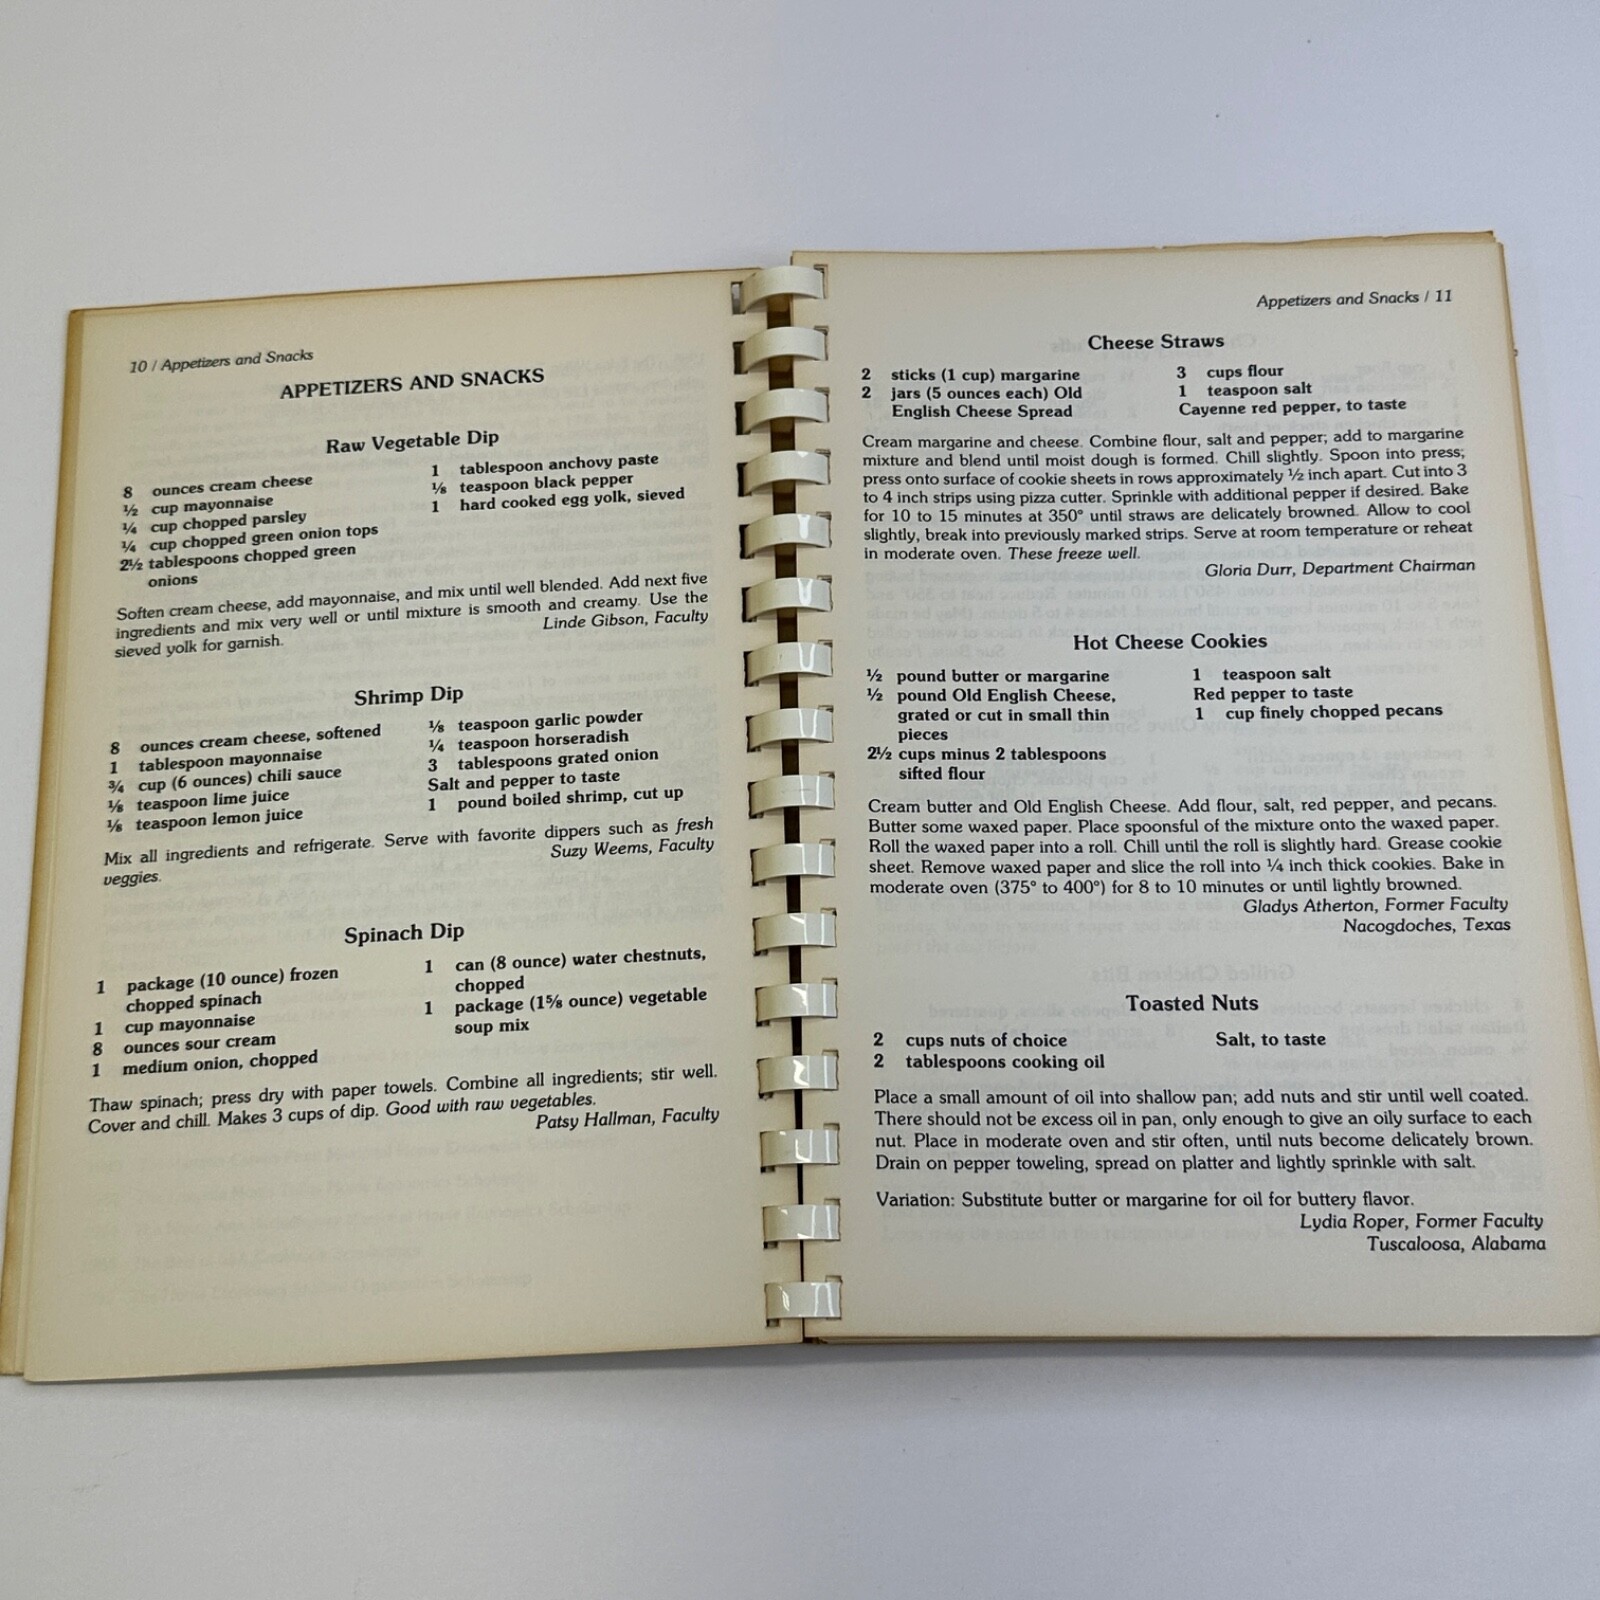 10 / Appetizers and Snacks
APPETIZERS AND SNACKS
Raw Vegetable Dip
8 ounces cream cheese
½ cup mayonnaise
¼ cup chopped parsley
¼ cup chopped green onion tops
2½ tablespoons chopped green
onions
1 tablespoon anchovy paste
⅛ teaspoon black pepper
1 hard cooked egg yolk, sieved
Soften cream cheese, add mayonnaise, and mix until well blended. Add next five
ingredients and mix very well or until mixture is smooth and creamy. Use the
sieved yolk for garnish.
Linde Gibson, Faculty
Shrimp Dip
8 ounces cream cheese, softened
1 tablespoon mayonnaise
¾ cup (6 ounces) chili sauce
⅛ teaspoon lime juice
⅛ teaspoon lemon juice
⅛ teaspoon garlic powder
¼ teaspoon horseradish
3 tablespoons grated onion
Salt and pepper to taste
1 pound boiled shrimp, cut up
Mix all ingredients and refrigerate. Serve with favorite dippers such as fresh
veggies.
Suzy Weems, Faculty
Spinach Dip
1 package (10 ounce) frozen
chopped spinach
1 cup mayonnaise
8 ounces sour cream
1 medium onion, chopped
1 can (8 ounce) water chestnuts,
chopped
1 package (1⅝ ounce) vegetable
soup mix
Thaw spinach; press dry with paper towels. Combine all ingredients; stir well.
Cover and chill. Makes 3 cups of dip. Good with raw vegetables.
Patsy Hallman, Faculty
Appetizers and Snacks / 11
Cheese Straws
2 sticks (1 cup) margarine
2 jars (5 ounces each) Old
English Cheese Spread
3 cups flour
1 teaspoon salt
Cayenne red pepper, to taste
Cream margarine and cheese. Combine flour, salt and pepper; add to margarine
mixture and blend until moist dough is formed. Chill slightly. Spoon into press;
press onto surface of cookie sheets in rows approximately ½ inch apart. Cut into 3
to 4 inch strips using pizza cutter. Sprinkle with additional pepper if desired. Bake
for 10 to 15 minutes at 350° until straws are delicately browned. Allow to cool
slightly, break into previously marked strips. Serve at room temperature or reheat
in moderate oven. These freeze well.
Gloria Durr, Department Chairman
Hot Cheese Cookies
½ pound butter or margarine
½ pound Old English Cheese,
grated or cut in small thin
pieces
2½ cups minus 2 tablespoons
sifted flour
1 teaspoon salt
Red pepper to taste
1 cup finely chopped pecans
Cream butter and Old English Cheese. Add flour, salt, red pepper, and pecans.
Butter some waxed paper. Place spoonsful of the mixture onto the waxed paper.
Roll the waxed paper into a roll. Chill until the roll is slightly hard. Grease cookie
sheet. Remove waxed paper and slice the roll into ¼ inch thick cookies. Bake in
moderate oven (375° to 400°) for 8 to 10 minutes or until lightly browned.
Gladys Atherton, Former Faculty
Nacogdoches, Texas
Toasted Nuts
2 cups nuts of choice
2 tablespoons cooking oil
Salt, to taste
Place a small amount of oil into shallow pan; add nuts and stir until well coated.
There should not be excess oil in pan, only enough to give an oily surface to each
nut. Place in moderate oven and stir often, until nuts become delicately brown.
Drain on pepper toweling, spread on platter and lightly sprinkle with salt.
Variation: Substitute butter or margarine for oil for buttery flavor.
Lydia Roper, Former Faculty
Tuscaloosa, Alabama